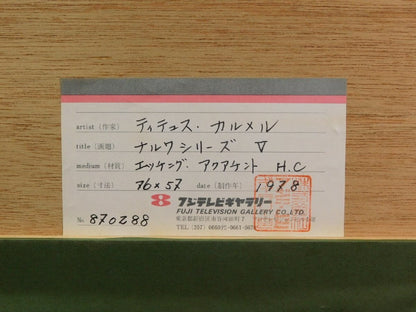 artist (作家) ティテュス・カルメル
title (演題) ナルワシリーズ V
medium (材質) エッチング・アクアケント H.C
size (寸法) 76×57 date (制作年) 1978
No. 870288
8 フジテレビギャラリー
FUJI TELEVISION GALLERY CO., LTD.
東京都新宿区市谷河田町7
TEL (357) 0660代